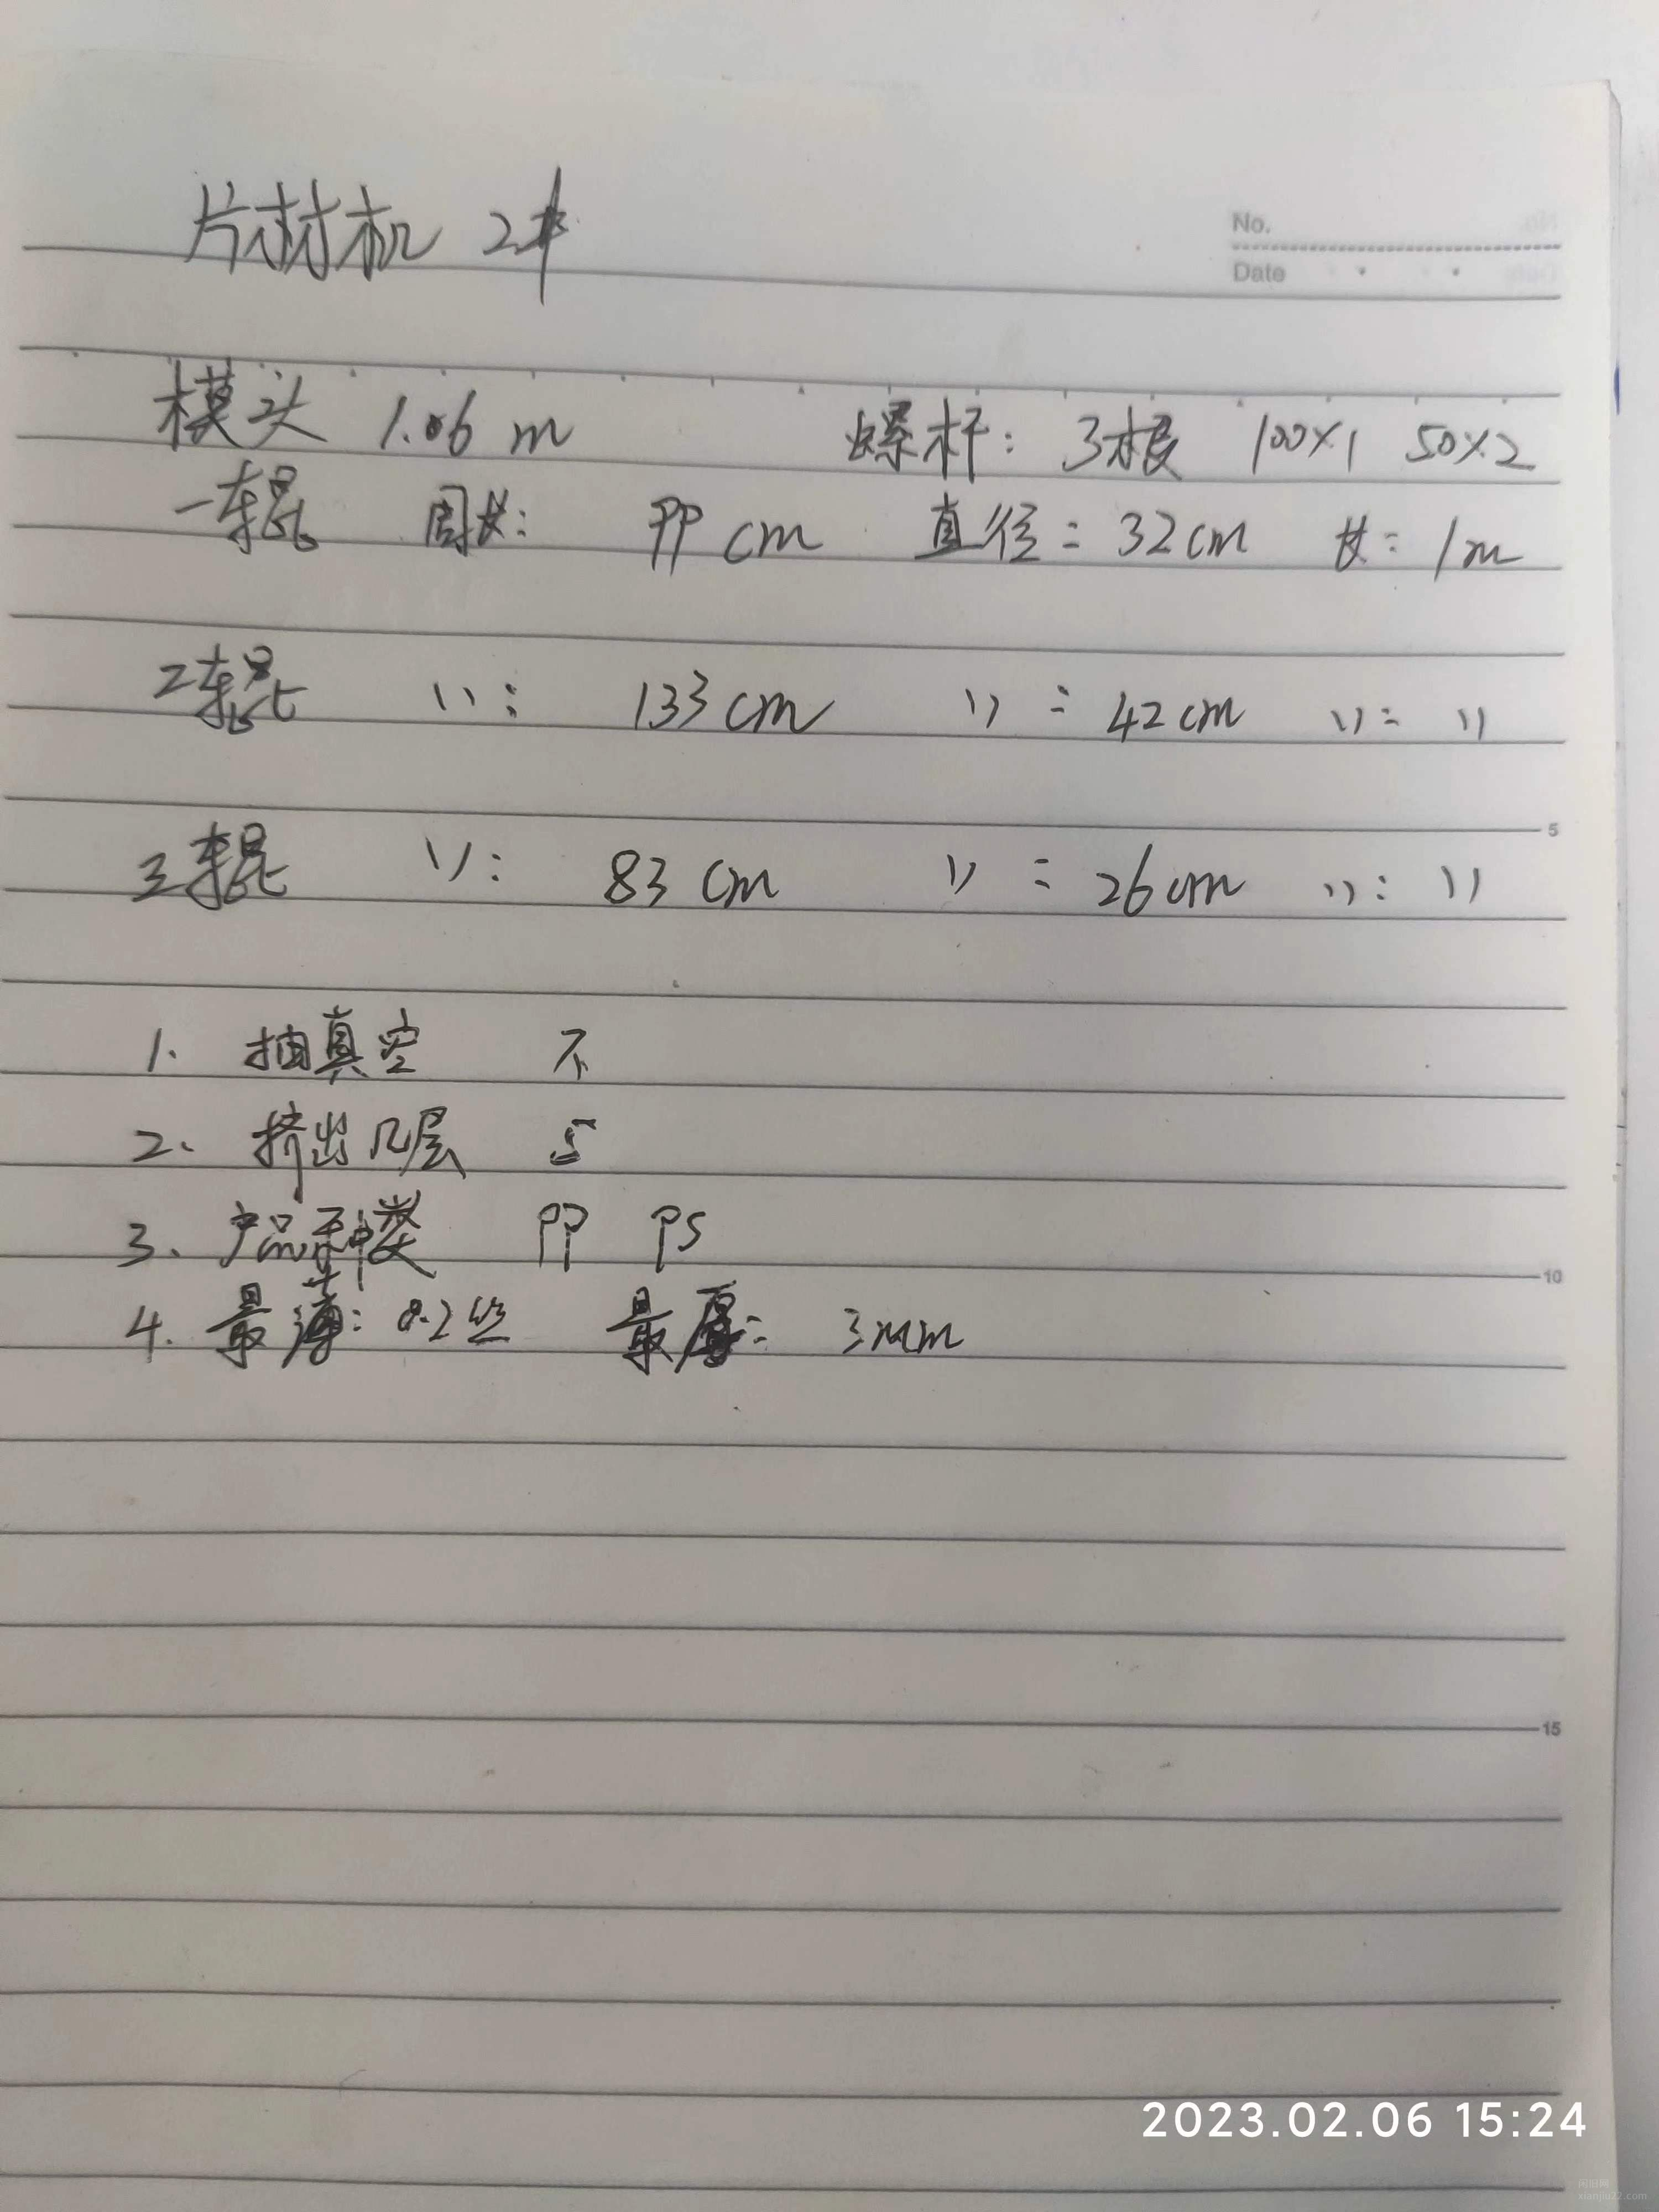 片材机 2#
No.
Date
模头 1.06 m 螺杆: 3根 100×1 50×2
一辊 周长: 99 cm 直径 = 32cm 长: 1m
二辊 〃: 133cm 〃 = 42cm 〃= 〃
三辊 〃: 83 cm 〃 = 26cm 〃: 〃
5
1. 抽真空 不
2. 挤出几层 5
3. 产品种类 PP PS
10
4. 最薄: 0.2丝 最厚: 3mm
15
2023.02.06 15:24
闲旧网
xianjiu22.com